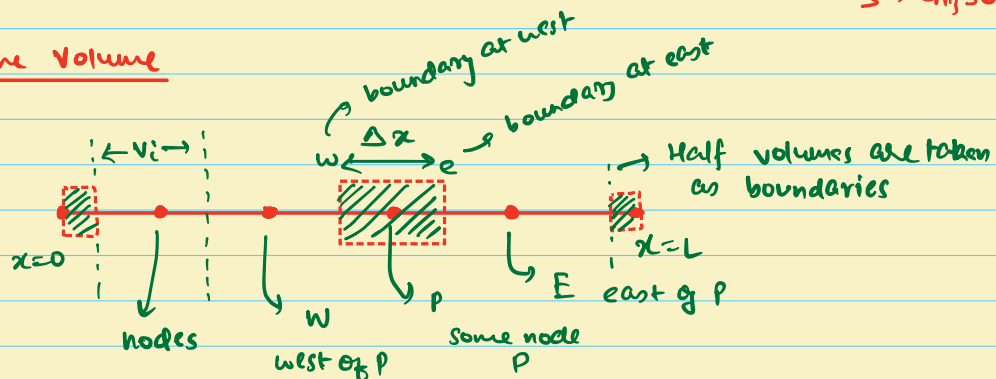 Volume
boundary at west
boundary at east
Vi
Δx
w
e
Half volumes are taken
as boundaries
x=0
x=L
nodes
W
west of P
P
some node
P
E
east of P